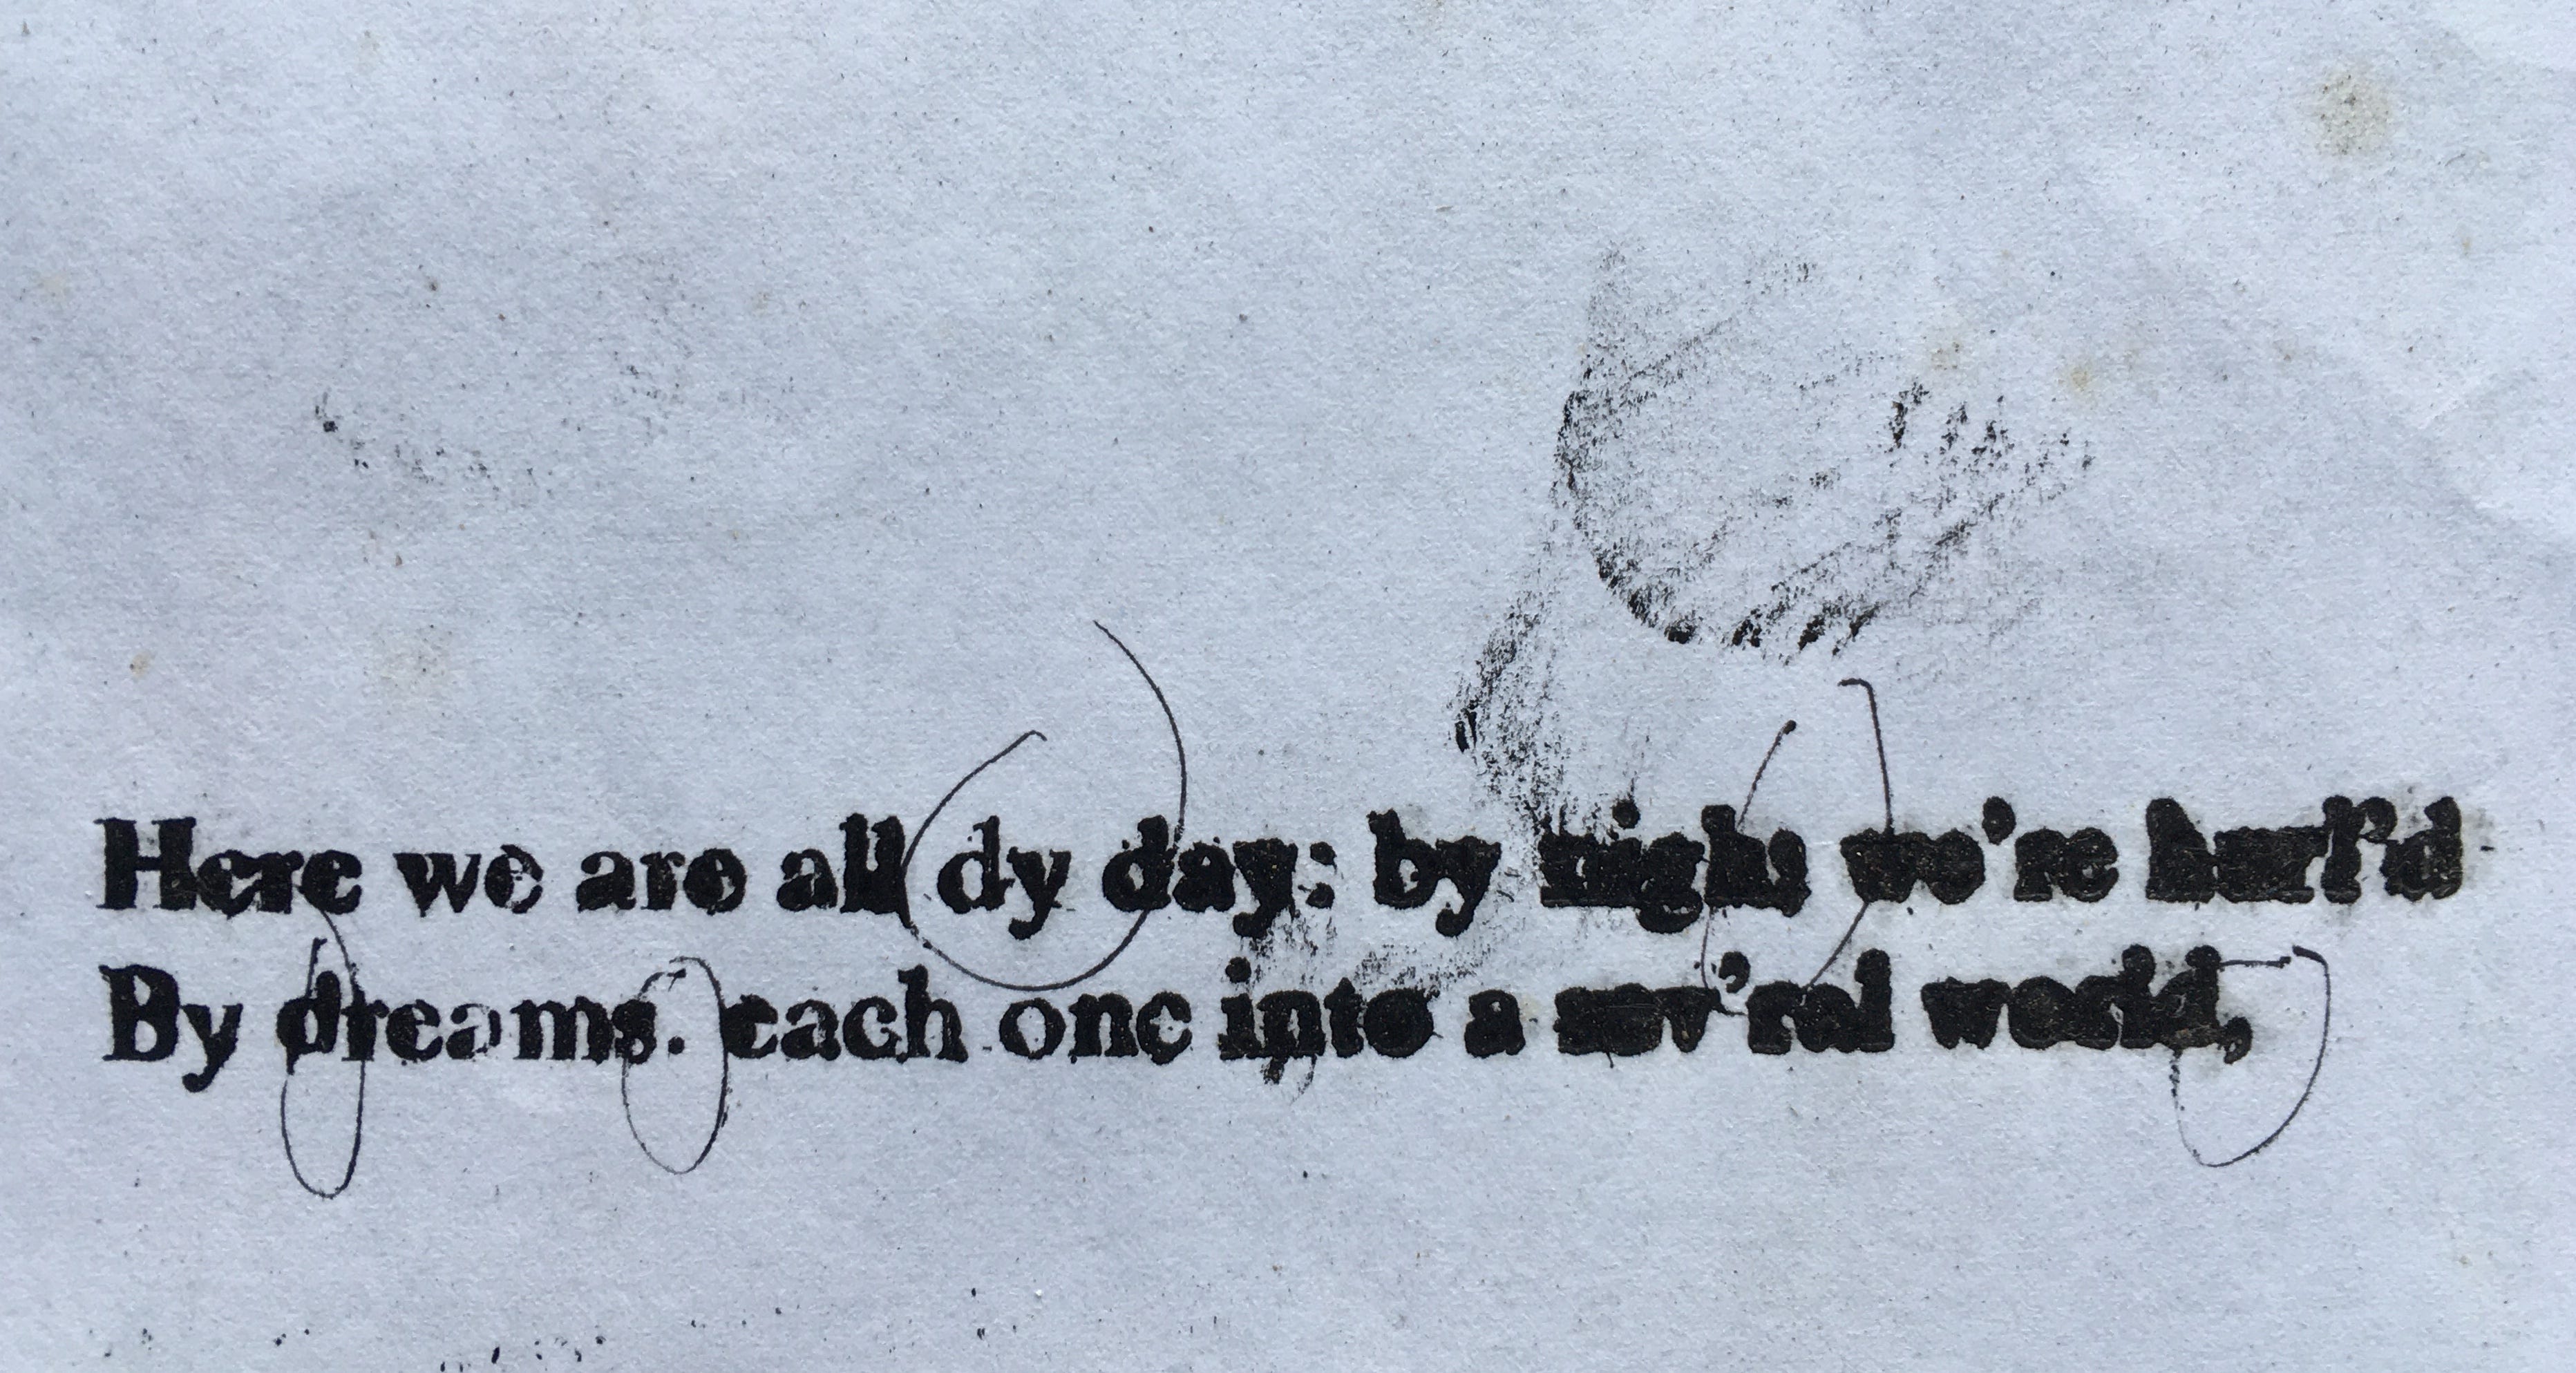 Here we are all dy day: by night we're hurl'd
By dreams. each one into a sev'ral world,